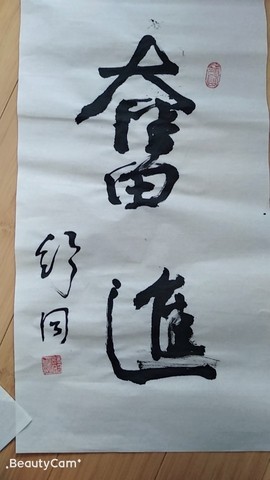 奮進
舒同
BeautyCam⁺